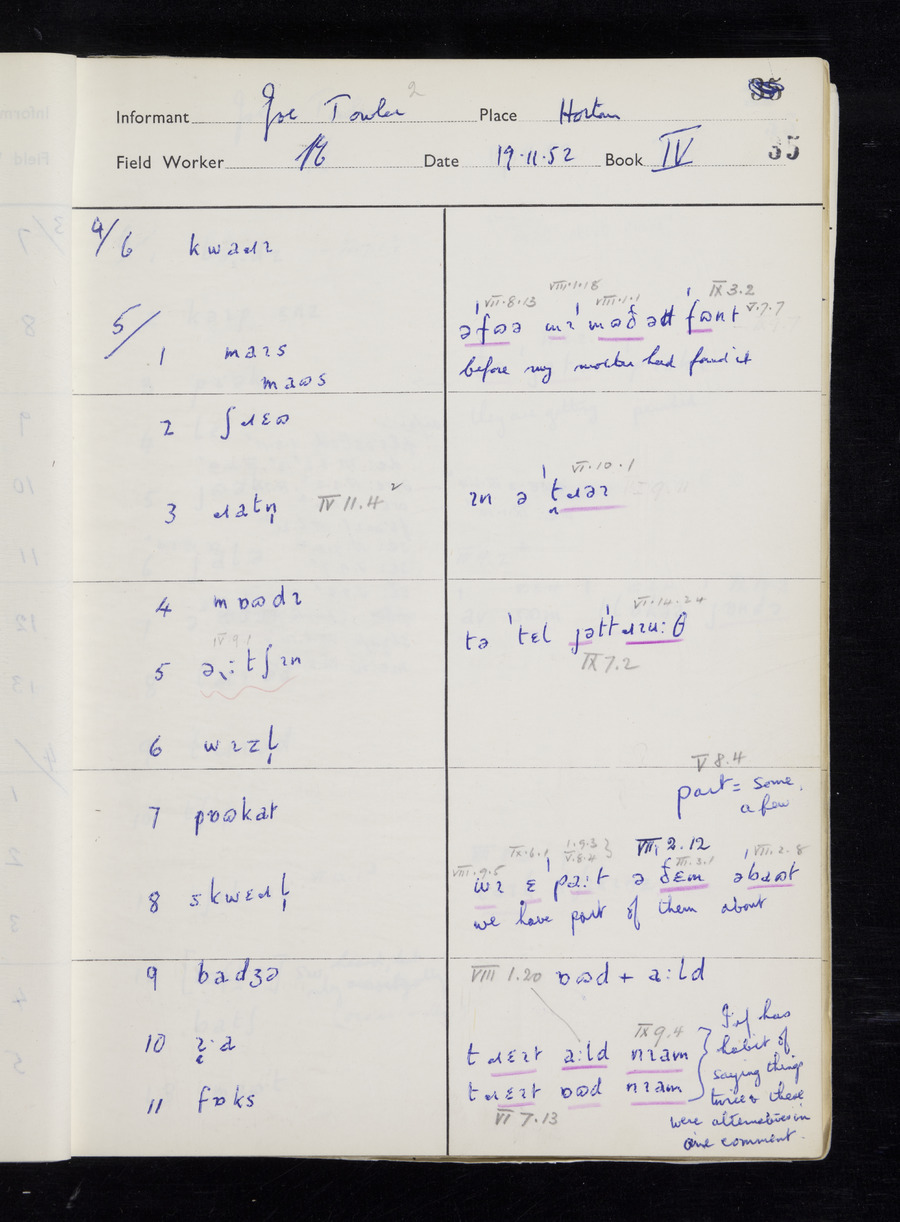 35
Informant Joe Towler 2 Place Horton
Field Worker Date 19.11.52 Book IV 35
4/6 kwaɹɪ
5/
1 maɪs
maʊs
VII.8.13 VIII.1.18 VIII.1.1 IX 3.2 V.7.7
əˈfʊə mɪ ˈmʊðə ətt ˈfʊnt
before my mother had found it
2 ʃɹɛʊ
3 ɹatn̩ IV 11.4 2
VI.10.1
ɪn ə ˈt̪ɹəɪ
4 mɒʊdɪ
IV 9.1
5 ə˞ːtʃɪn
6 wɪzl̩
VI.14.24
tə ˈtɛl jəˈttɹɪuːθ
IX 7.2
7 pɒʊkat
V 8.4
part = some,
a few
8 skwɛɹl̩
VIII.9.5 IX.6.1 1.9.3 V.8.4 VII.2.12 III.3.1 VII.2.8
wɪ ɛ ˈpaːt ə ðɛm əˈbaʊt
we have part of them about
9 badʒə
VIII 1.20 ɒʊd + aːld
10 ɪ̞·a
IX 9.4
tɹɛɪt aːld nɪam
11 fɒks
tɹɛɪt ɒʊd nɪam
VI 7.13
Inf has
habit of
saying things
twice & these
were alternatives in
one comment.